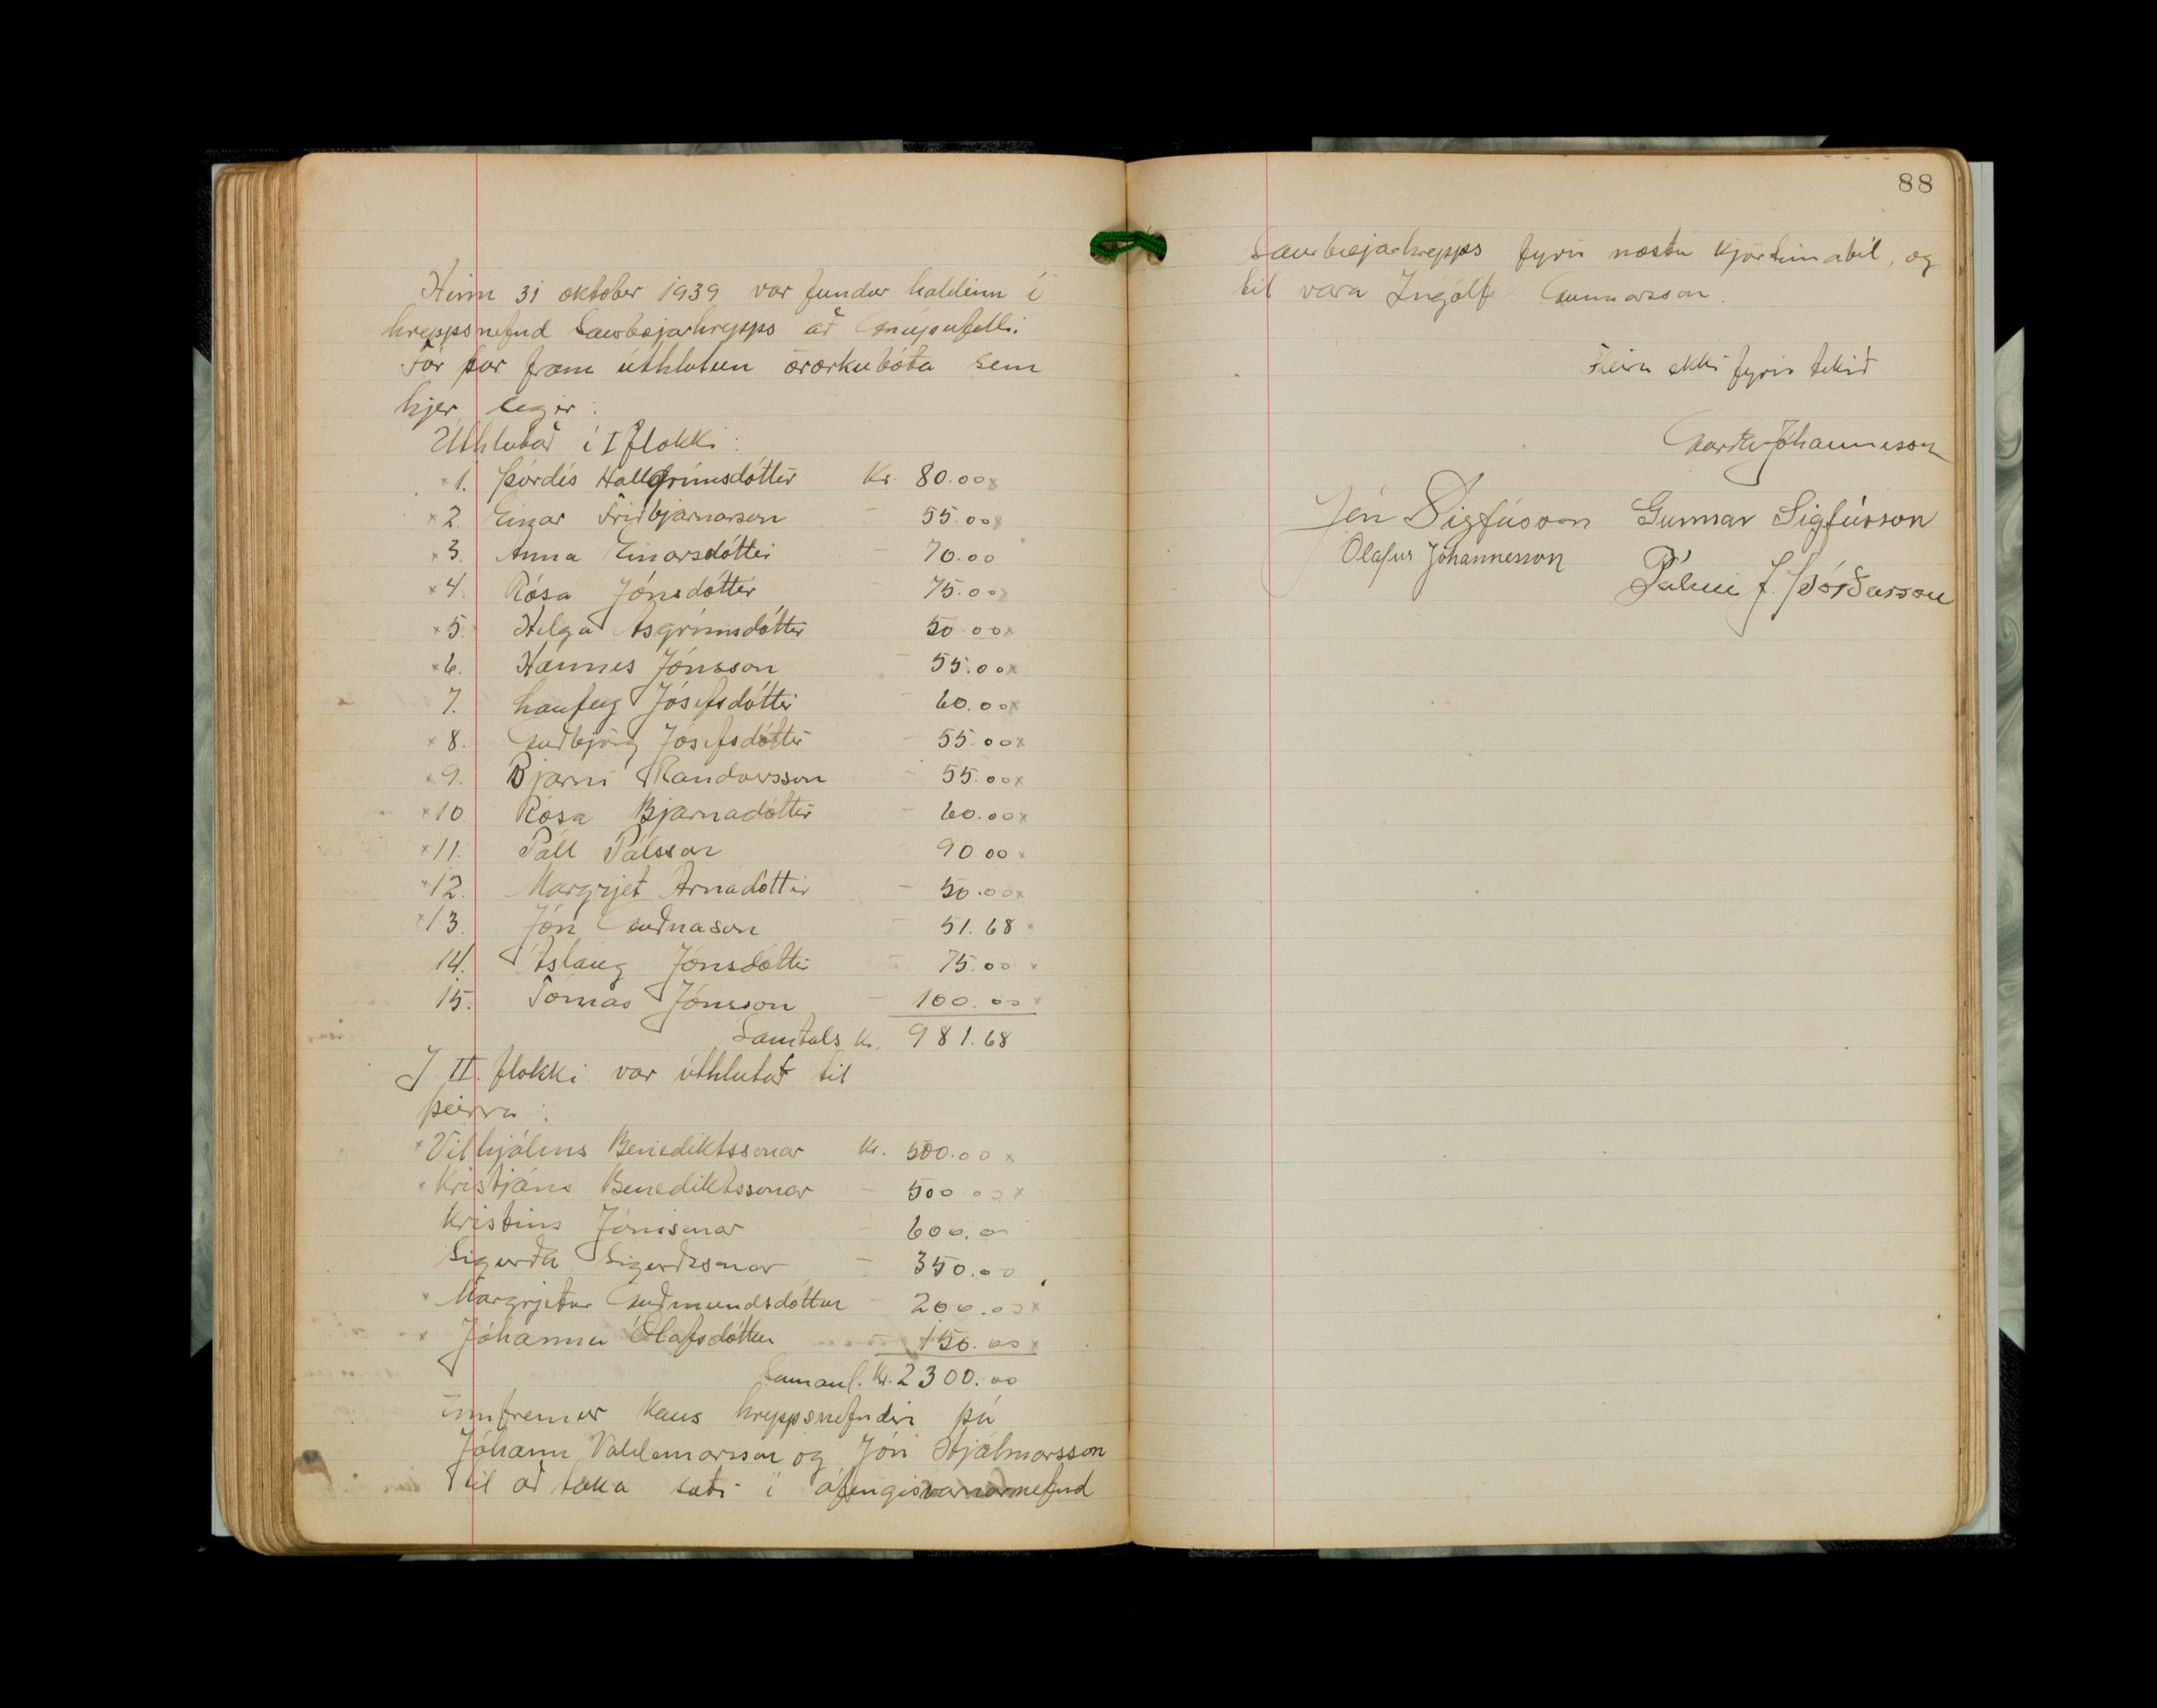 Hinn 31 október 1939 var fundur haldinn í
hreppsnefnd Saurbæjarhrepps að Gnúpufelli.
Fór þar fram úthlutun örorkubóta sem
hjer segir:
Úthlutað í I flokki:
×1. Þórdís Hallgrímsdóttir Kr. 80.00 x
×2. Einar Friðbjarnarson - 55.00 x
×3. Anna Einarsdóttir - 70.00
×4. Rósa Jónsdóttir 75.00 x
×5. Helga Ásgrímsdóttir 50.00 x
×6. Hannes Jónsson - 55.00 x
7. Laufey Jósefsdóttir - 60.00 x
×8. Guðbjörg Jósefsdóttir - 55.00 x
×9. Bjarni Randversson - 55.00 x
×10. Rósa Bjarnadóttir - 60.00 x
×11. Páll Pálsson 90.00 x
×12. Margrjet Árnadóttir - 50.00 x
×13. Jón Guðnason - 51.68 x
14. Áslaug Jónsdóttir - 75.00 x
15. Tómas Jónsson - 100.00 x
Samtals kr. 981.68
Í II. flokki var úthlutað til
þeirra:
× Vilhjálms Benediktssonar Kr. 500.00 x
× Kristjáns Benediktssonar - 500.00 x
Kristins Jónssonar - 600.00
Sigurða Sigurðssonar - 350.00
× Margrjetar Guðmundsdóttur - 200.00 x
× Jóhannu Ólafsdóttur - 150.00 x
Samanl. Kr. 2300.00
Ennfremur kaus hreppsnefndin þá
Jóhann Valdemarsson og Jón Hjálmarsson
til að taka sæti í áfengisvarnarnefnd
88
Saurbæjarhrepps fyrir næsta kjörtímabil, og
til vara Ingólf Gunnarsson.
Fleira ekki fyrir tekið
Garðar Jóhannesson
Jón Sigfússon Gunnar Sigfússon
Ólafur Jóhannesson
Pálmi J. Þórðarson